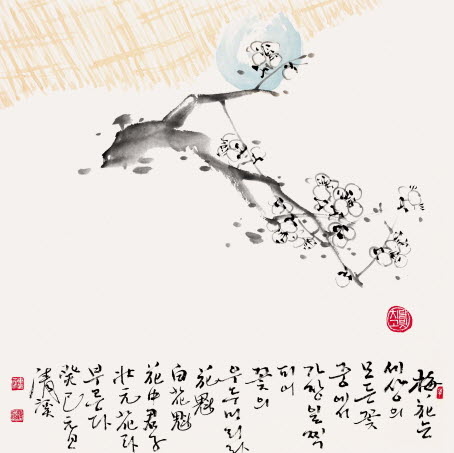 梅花는
세상의
모든 꽃
중에서
가장 일찍
피어
꽃의
우두머리라
花魁
百花魁
花中君子
壯元花라
부른다
癸巳元旦
清溪